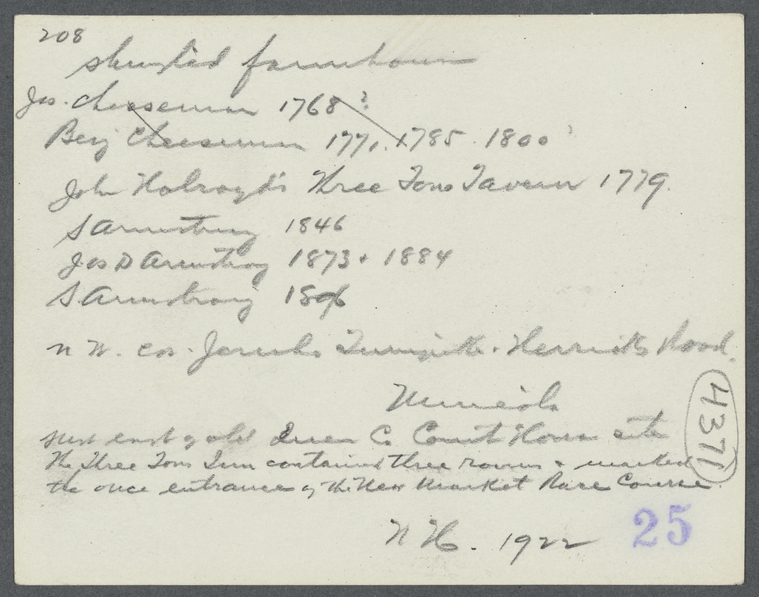 208
shingled farmhouse
Jos. Cheeseman 1768?
Benj Cheeseman 1771. 1785. 1800?
John Holroyd's Three Tons Tavern 1779.
S Armstrong 1846
Jos D Armstrong 1873 + 1884
S. Armstrong 1896
N W. cor. Jericho Turnpike. Herricks Road.
Mineola
4371
just east of old Queen Co Court House site
The Three Tons Inn contained three rooms + marked
the once entrance of the New Market Race Course.
N H. 1922
25